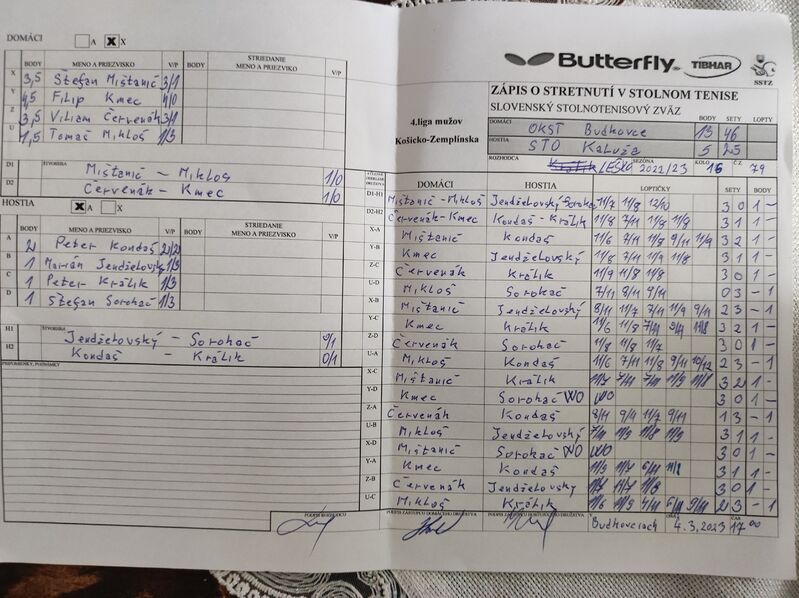 DOMÁCI A X X
BODY MENO A PRIEZVISKO V/P BODY STRIEDANIE MENO A PRIEZVISKO V/P
X 3,5 Štefan Mištanič 3/1
Y 4,5 Filip Kmec 4/0
Z 3,5 Viliam Červenák 3/1
U 1,5 Tomáš Mikloš 1/3
D1 ŠTVORHRA Mištanič - Mikloš 1/0
D2 Červenák - Kmec 1/0
HOSTIA X A X
BODY MENO A PRIEZVISKO V/P BODY STRIEDANIE MENO A PRIEZVISKO V/P
A 2 Peter Kondaš 2/2
B 1 Marián Jendželovský 1/3
C 1 Peter Králik 1/3
D 1 Štefan Sorohač 1/3
H1 ŠTVORHRA Jendželovský - Sorohač 0/1
H2 Kondaš - Králik 0/1
PRIPOMIENKY, POZNÁMKY
PODPIS ROZHODCU
Butterfly TIBHAR
SSTZ
4.liga mužov
Košicko-Zemplínska
ZÁPIS O STRETNUTÍ V STOLNOM TENISE
SLOVENSKÝ STOLNOTENISOVÝ ZVÄZ
DOMÁCI OKST Budkovce BODY 13 SETY 46 LOPTY
HOSTIA STO Kaluža 5 25
ROZHODCA LEŠKO SEZÓNA 2022/23 KOLO 16 Č.Z. 79
DOMÁCI HOSTIA LOPTIČKY SETY BODY
D1-H1 Mištanič - Mikloš Jendželovský Sorohač 11/7 11/8 12/10 3 0 1 -
D2-H2 Červenák - Kmec Kondaš - Králik 11/8 7/11 11/8 11/8 3 1 1 -
X-A Mištanič Kondaš 11/6 7/11 11/8 9/11 11/9 3 2 1 -
Y-B Kmec Jendželovský 11/8 7/11 11/9 11/8 3 1 1 -
Z-C Červenák Králik 11/9 11/8 11/8 3 0 1 -
U-D Mikloš Sorohač 7/11 8/11 9/11 0 3 - 1
X-B Mištanič Jendželovský 8/11 11/7 7/11 11/9 9/11 2 3 - 1
Y-C Kmec Králik 11/6 11/8 7/11 11/8 3 2 1 -
Z-D Červenák Sorohač 11/8 11/8 11/7 3 0 1 -
U-A Mikloš Kondaš 11/6 7/11 11/8 9/11 10/12 2 3 - 1
X-C Mištanič Králik 7/11 3 2 1 -
Y-D Kmec Sorohač WO WO 3 0 1 -
Z-A Červenák Kondaš 8/11 9/11 1 3 - 1
U-B Mikloš Jendželovský 7/11 11/9 11/8 11/9 3 1 1 -
X-D Mištanič Sorohač WO WO 3 0 1 -
Y-A Kmec Kondaš 11/9 11/7 6/11 3 1 1 -
Z-B Červenák Jendželovský 11/7 11/8 3 0 1 -
U-C Mikloš Králik 11/6 2 3 - 1
PODPIS ZÁSTUPCU DOMÁCEHO DRUŽSTVA PODPIS ZÁSTUPCU HOSŤUJÚCEHO DRUŽSTVA V Budkovciach 4.3.2023 ČAS 17 00